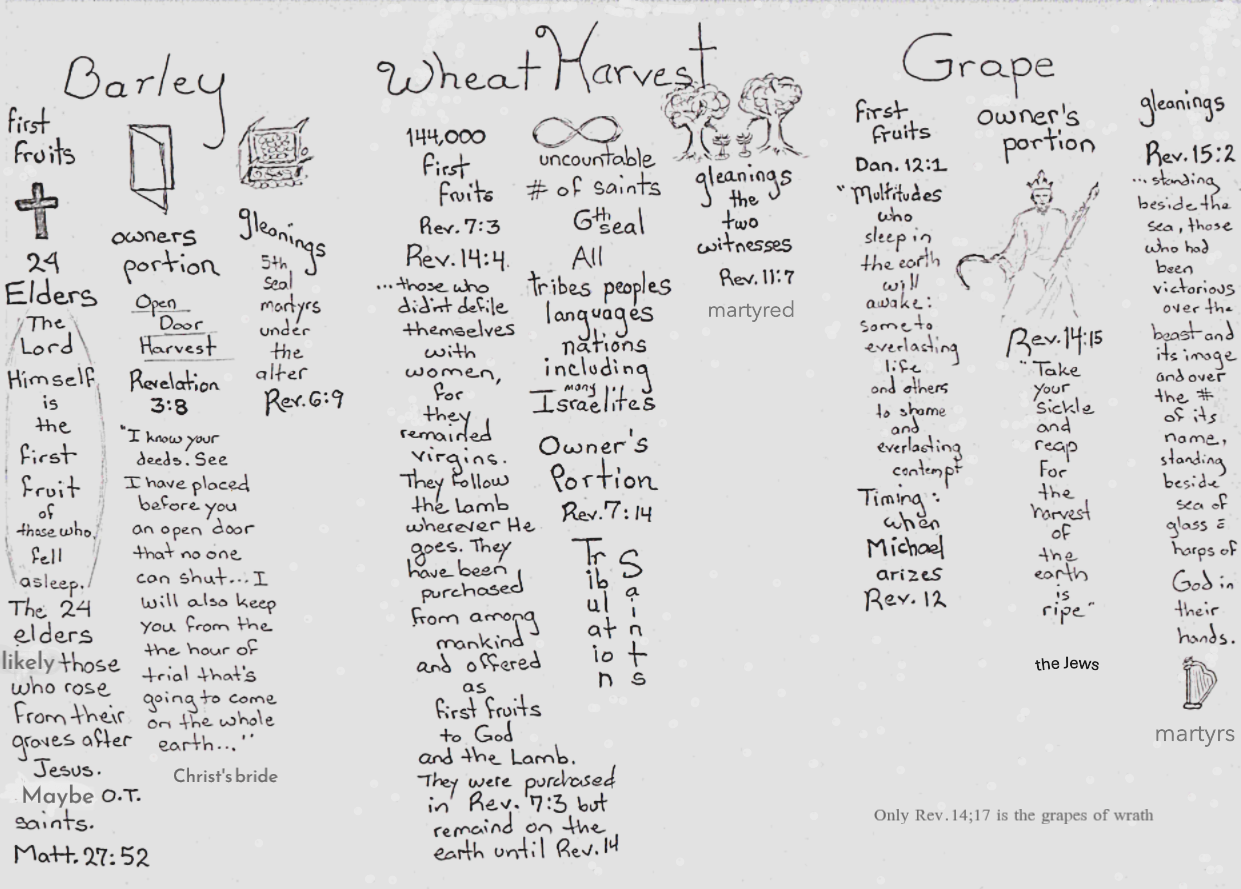 Barley
first
fruits
24
Elders
The
Lord
Himself
is
the
first
fruit
of
those who
fell
asleep.
The 24
elders
likely those
who rose
from their
graves after
Jesus.
Maybe O.T.
saints.
Matt. 27:52
owners
portion
Open
Door
Harvest
Revelation
3:8
"I know your
deeds. See
I have placed
before you
an open door
that no one
can shut...I
will also keep
you from the
the hour of
trial that's
going to come
on the whole
earth..."
Christ's bride
gleanings
5th
Seal
martyrs
under
the
alter
Rev. 6:9
Wheat Harvest
144,000
first
fruits
Rev. 7:3
Rev. 14:4.
...those who
didn't defile
themselves
with
women,
for
they
remained
virgins.
They follow
the Lamb
wherever He
goes. They
have been
purchased
from among
mankind
and offered
as
first fruits
to God
and the Lamb.
They were purchased
in Rev. 7:3 but
remaind on the
earth until Rev. 14
uncountable
# of saints
6th seal
All
tribes peoples
languages
nations
including
many
Israelites
Owner's
Portion
Rev. 7:14
Tribulation
Saints
gleanings
the
two
witnesses
Rev. 11:7
martyred
Grape
first
fruits
Dan. 12:1
"Multitudes
who
sleep in
the earth
will
awake:
some to
everlasting
life
and others
to shame
and
everlasting
contempt
Timing:
when
Michael
arizes
Rev. 12
owner's
portion
Rev. 14:15
"Take
your
sickle
and
reap
For
the
harvest
of
the
earth
is
ripe"
the Jews
gleanings
Rev. 15:2
...standing
beside the
sea, those
who had
been
victorious
over the
beast and
its image
and over
the #
of its
name,
standing
beside
sea of
glass &
harps of
God in
their
hands.
martyrs
Only Rev. 14;17 is the grapes of wrath